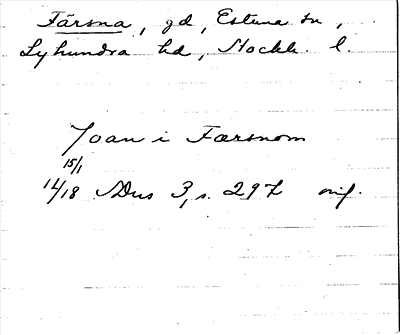 Färsna, gd, Estuna sn,
Lyhundra hd, Stockh. l.
Joan i Færsnom
15/1
1418 SDns 3, s. 297 orig.